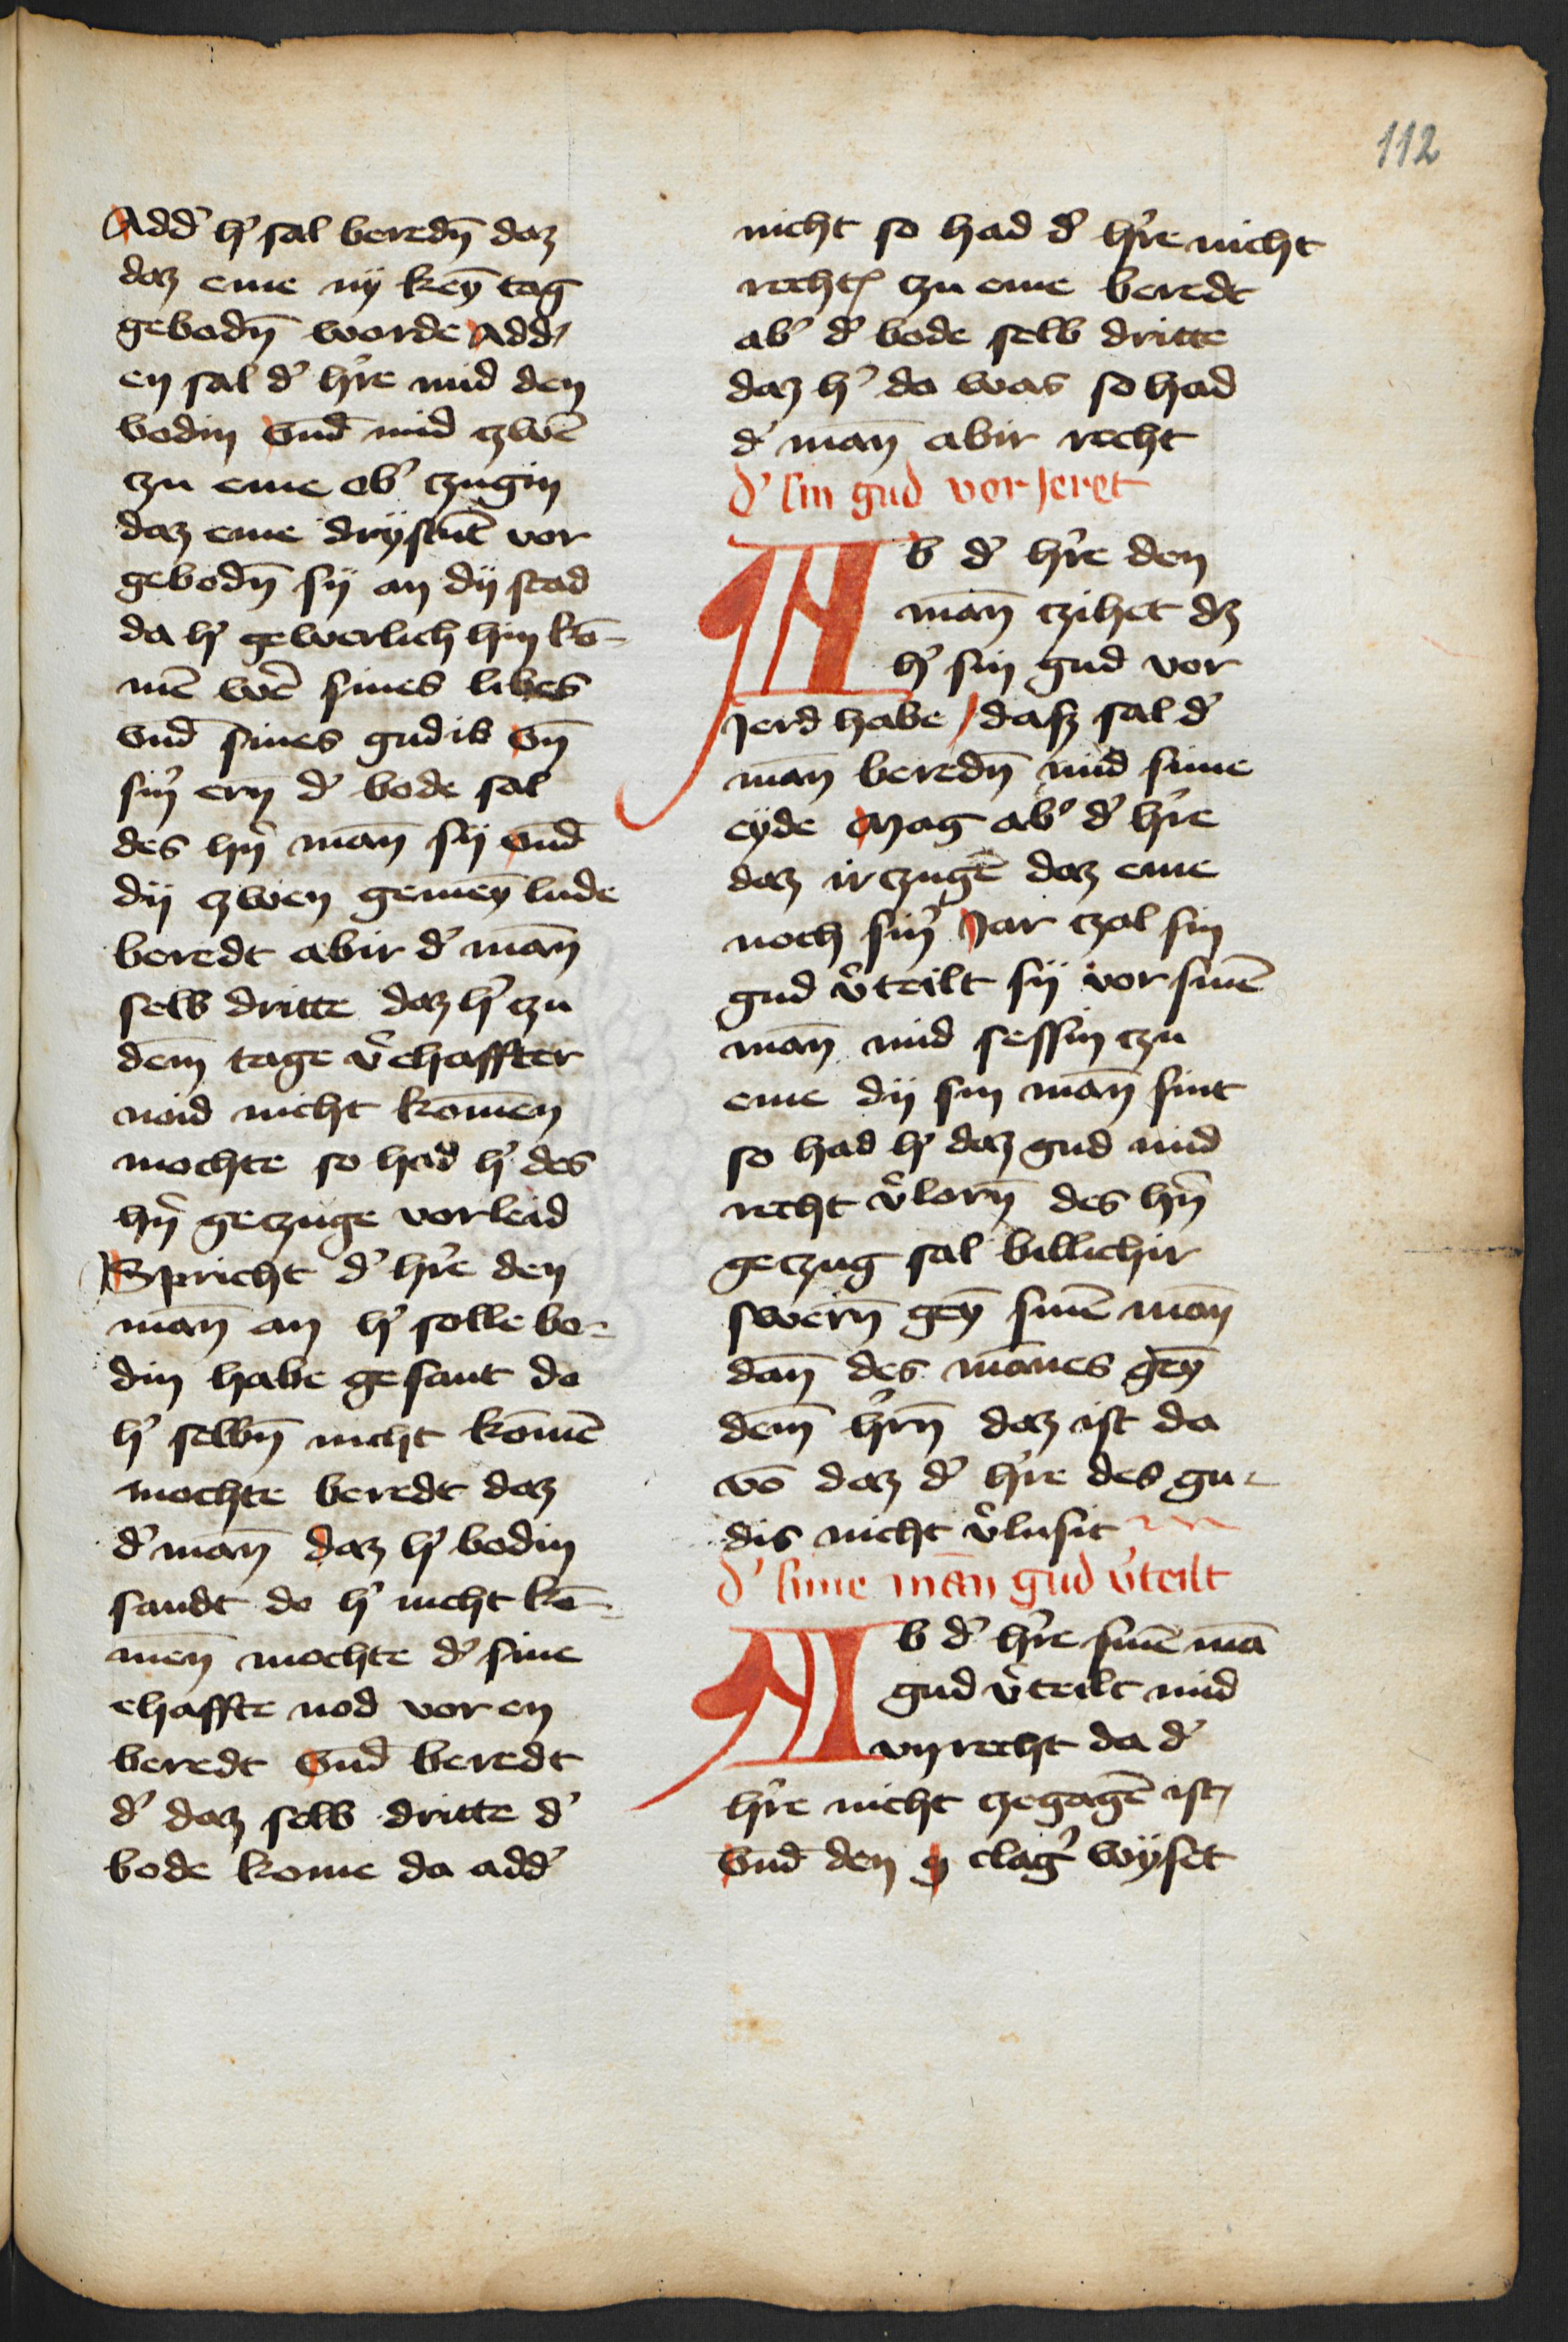 112
Add' h' sal beredn̄ daz
daz eme ny keȳ tag
gebodn̄ worde Add'
en sal d' h're mid den
bodin vnd̄ mid czwē
czu eme ob' czugin
daz eme drystūt vor
gebodn̄ sy an dy stad
da h' gewerlich hin kō-
mē wē sines libes
vnd̄ sines gudis vn̄
sin' ern̄ d' bode sal
des hn̄ man̄ sy vnd̄
dy czwen gemeȳ lude
beredt abir d' man̄
selb dritte daz h' czu
dem̄ tage v'ehaffter
noid nicht kom̄en
mochte so had h' des
hn̄ geczuge vorleid
Spricht d' h're den
man̄ an h' solle bo-
din habe gesant do
h' selbn̄ nicht kōmē
mochte beredt daz
d' man̄ daz h' bodin
sandt do h' nicht kō-
men̄ mochte d' sine
ehaffte nod vor en
beredt vnd̄ beredt
d' daz selb dritte d'
bode kome da add'
nicht so had d' h're nicht
recht czu eme beredt
ab' d' bode selb dritte
daz h' da was so had
d' man̄ abir recht
d' sin gud vor Jeret
Ab d' h're den
man̄ czihet dz
h' sin gud vor
Jerd habe / dasz sal d'
man̄ beredn̄ mid sime
eyde Mag ab' d' h're
daz irczugē daz eme
noch sin' Jar czal sin
gud v'teilt sy vor sinē
man̄ mid sessin czu
eme dy sin man̄ sint
so had h' daz gud mid
recht v'lorn̄ des hn̄
geczug sal billichir
swern̄ geȳ sinē man̄
dan̄ des mānes geȳ
dem̄ h'rn̄ daz ist da
vō daz d' h're des gu-
dis nicht v'lusit
d' sime man̄ gud v'teilt
Ab d' h're sinē mā
gud v'teilt mid
vnrecht da d'
h're nicht czegagē ist
vnd̄ den clag' wyset